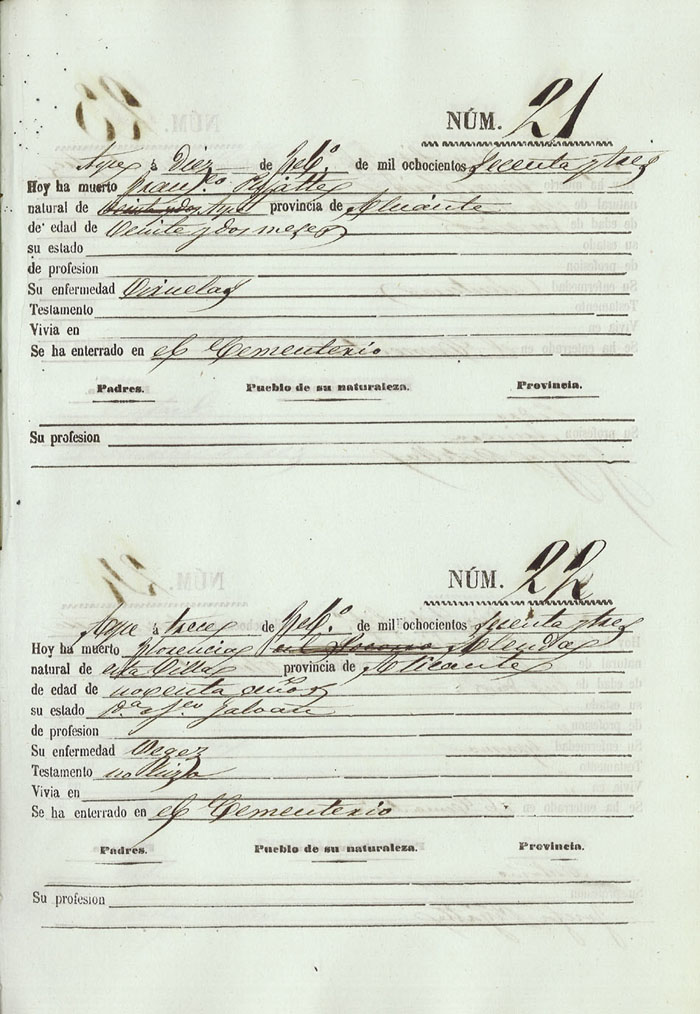 NÚM. 21
Aspe á Diez de Feb.º de mil ochocientos sesenta y tres
Hoy ha muerto Fran.co
natural de Aspe provincia de Alicante
de edad de Veinte y dos meses
su estado
de profesion
Su enfermedad Viruelas
Testamento
Vivia en
Se ha enterrado en el Cementerio
Padres. Pueblo de su naturaleza. Provincia.
Su profesion
NÚM. 22
Aspe á trece de Feb.º de mil ochocientos sesenta y tres
Hoy ha muerto Florencia
natural de esta Villa provincia de Alicante
de edad de noventa años
su estado
de profesion
Su enfermedad Vegez
Testamento no hizo
Vivia en
Se ha enterrado en el Cementerio
Padres. Pueblo de su naturaleza. Provincia.
Su profesion